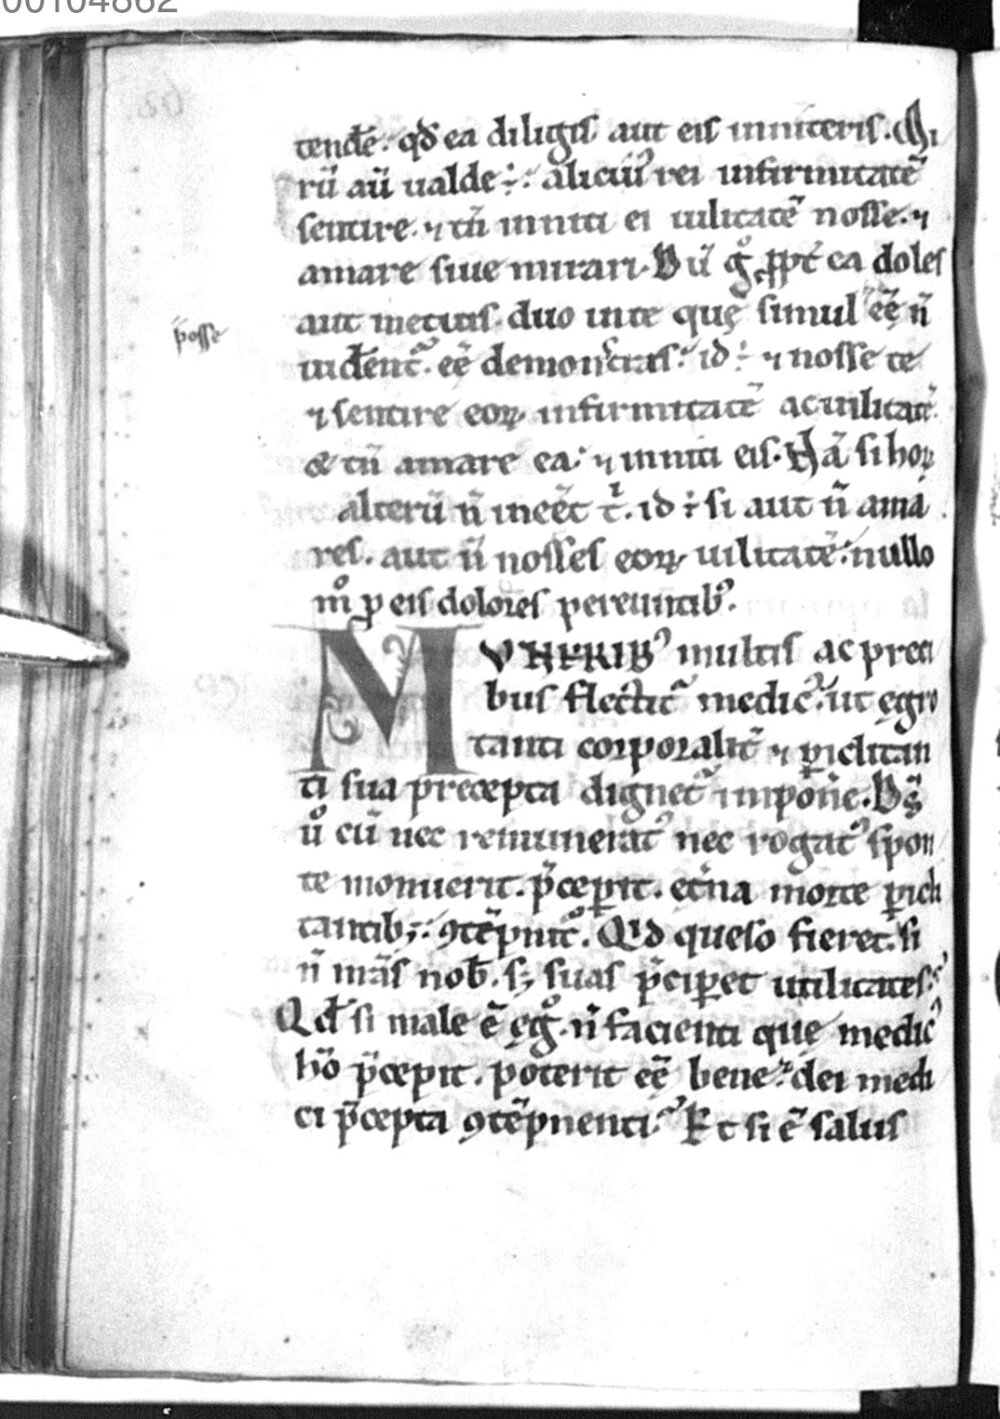 00104862
tendē. qđ ea diligis aut eis inniteris. Mi
rū aū ualde ÷. alicui᷒ rei infirmitatē
sentire. ⁊ tn̄ inniti ei uilitatē nosse. ⁊
amare siue mirari. Dū gͦ ꝓpt ea doles
aut metuis. duo in te quę simul eē n̄
p̄osse
uident᷒. eē demonstras. id ÷ ⁊ nosse te
⁊ sentire eoꝝ infirmitatē ac uilitatē.
& tn̄ amare ea. ⁊ inniti eis. Nā si hoꝝ
alterū n̄ ineēt t̄. id ÷ si aut n̄ ama
res. aut n̄ nosses eoꝝ uilitatē. nullo
mͦ ꝑ eis dolores pereuntib᷒.
MUNERIB᷒ multis ac preci
bus flectit᷒ medic᷒. ut ęgro
tanti corporalit̄ ⁊ ꝑiclitan
ti sua precepta dignet᷒ imponē. Ds̄
uͦ cū nec remunerat᷒ nec rogat᷒ spon
te monuerit. p̄ceꝑit. etn̄a morte ꝑicli
tantib; ꝯtēpnit᷒. Qid queso fieret. si
n̄ nr̄as nob̄. sꝫ suas p̄ciꝑet utilitates.
Qđ si male ē ęgͦ. n̄ facienti quę medic᷒
hō p̄cepit. poterit eē bene dei medi
ci p̄cepta ꝯtēpnenti. Et si ē salus